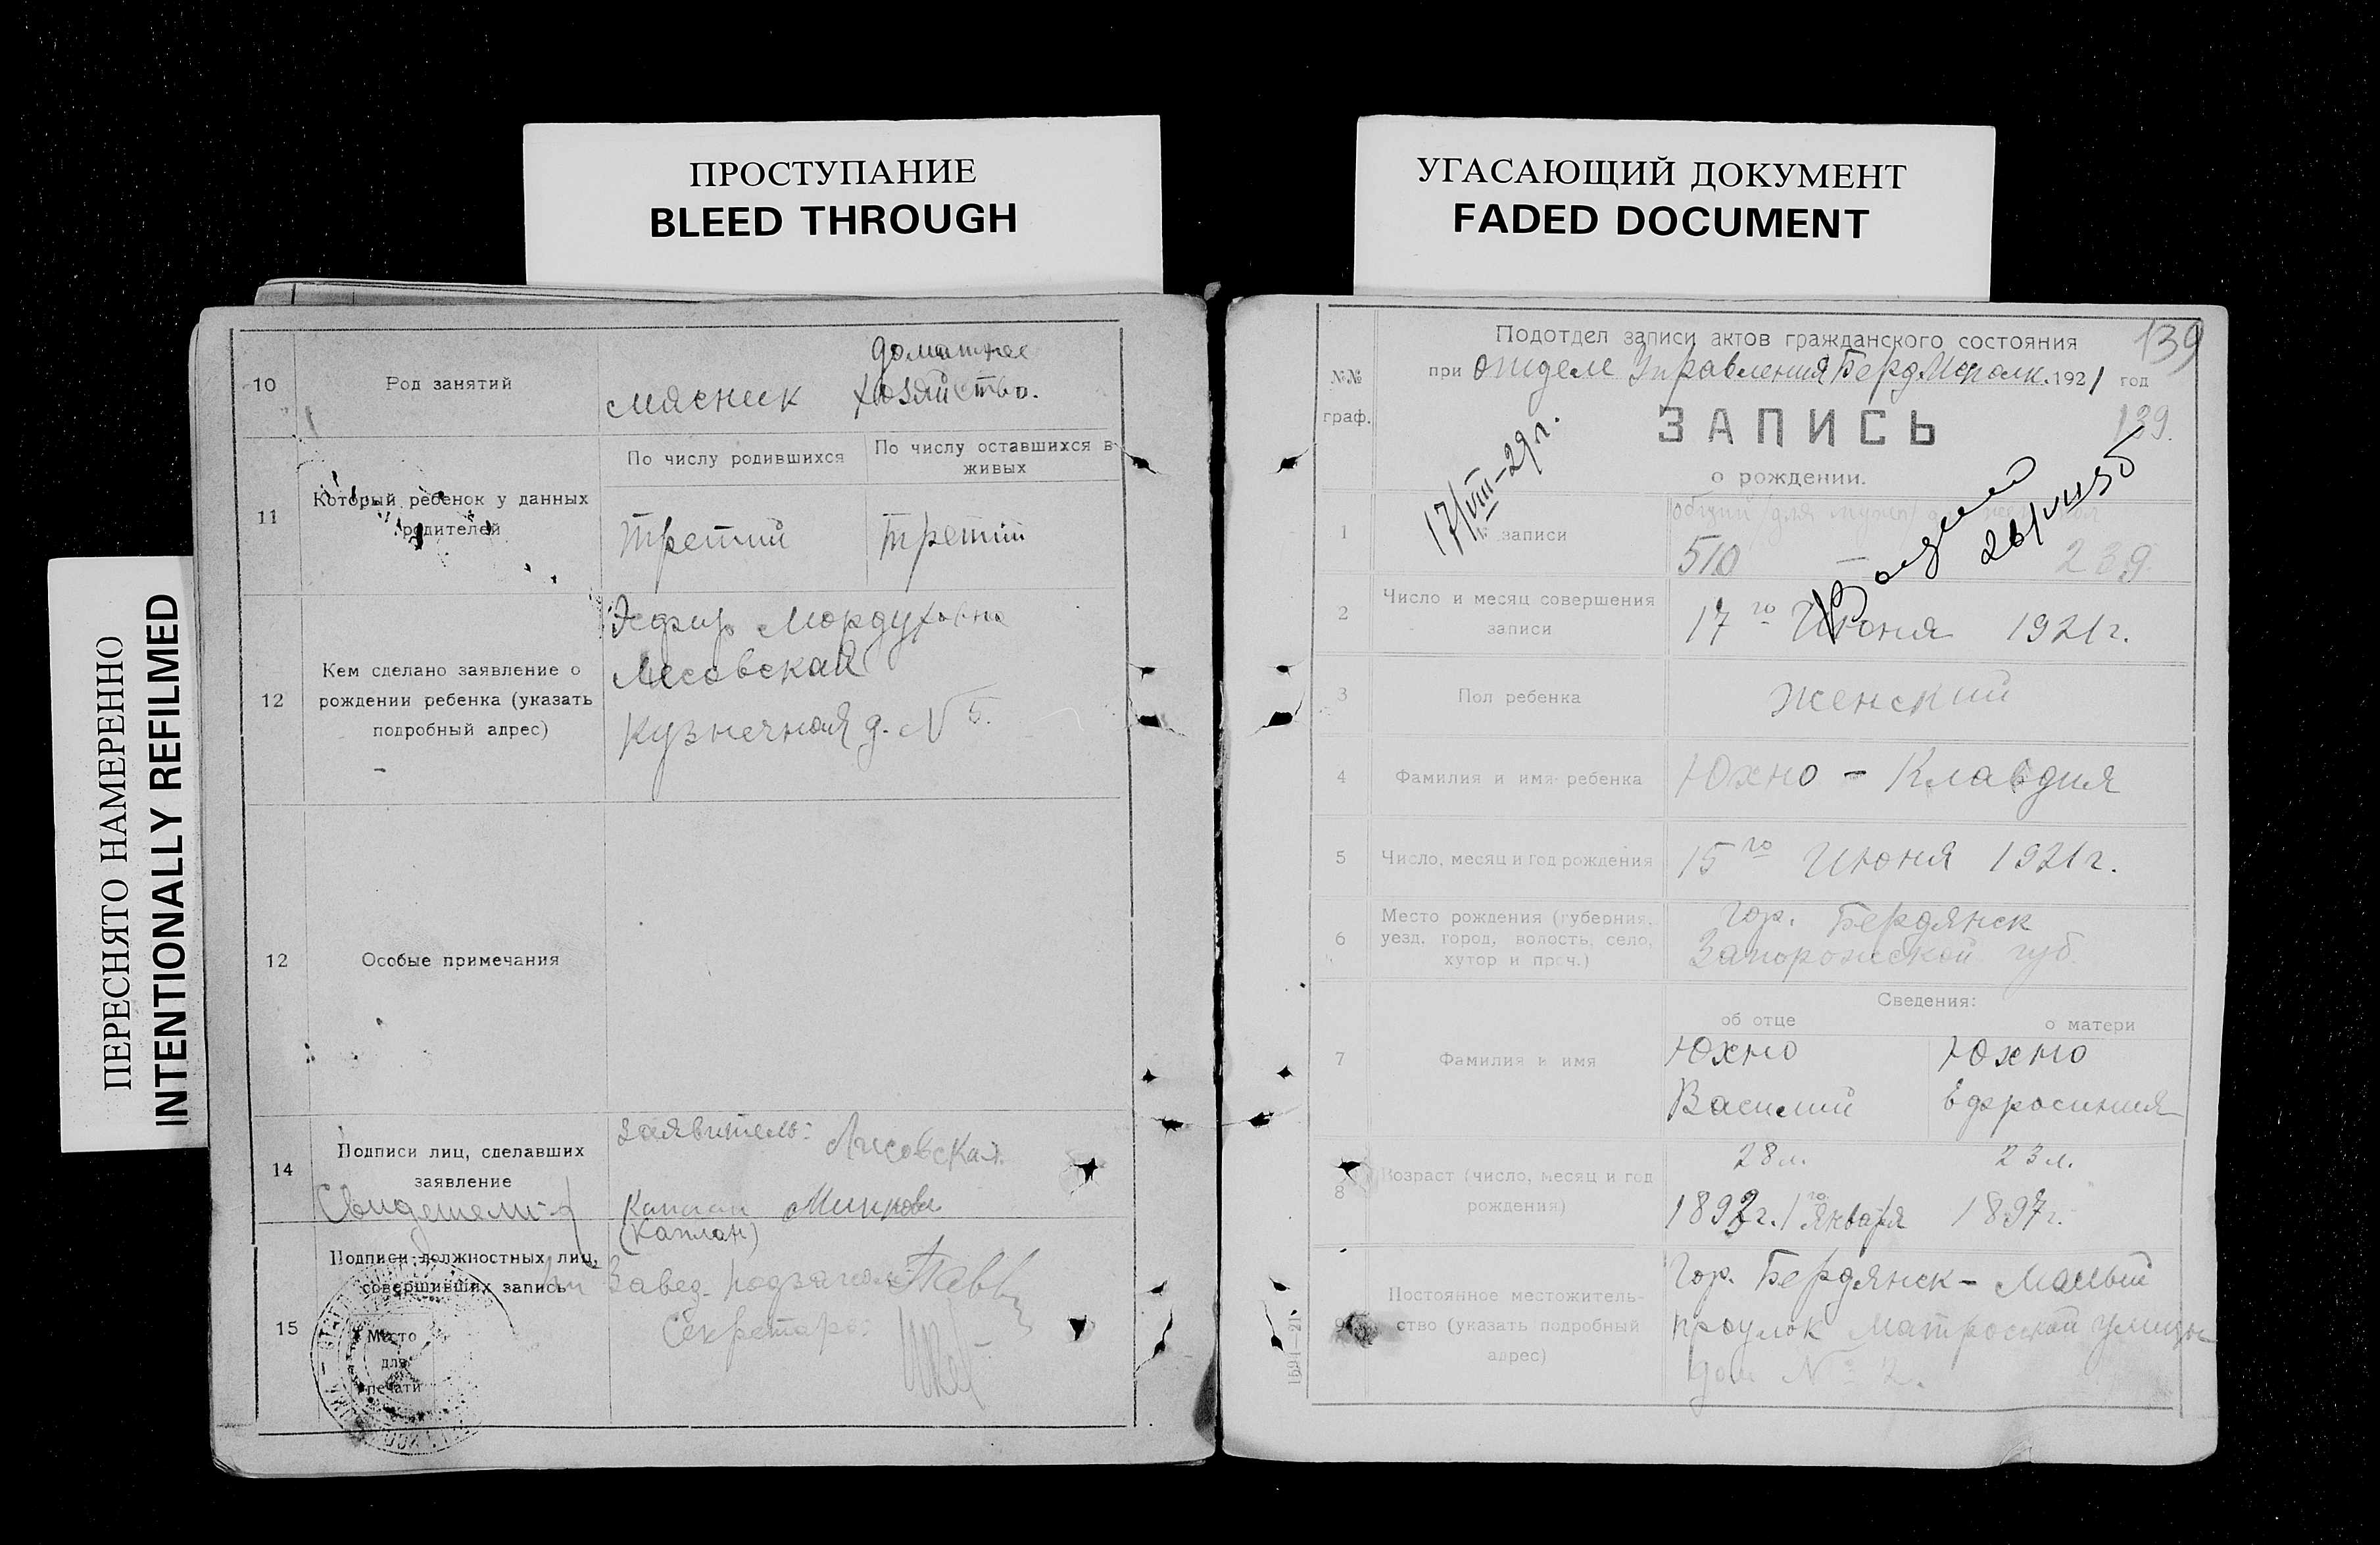 ПРОСТУПАНИЕ
BLEED THROUGH
УГАСАЮЩИЙ ДОКУМЕНТ
FADED DOCUMENT
ПЕРЕСНЯТО НАМЕРЕННО
INTENTIONALLY REFILMED
10
Род занятий
мясник
домашнее
хозяйство.
11
Который ребенок у данных
родителей
По числу родившихся
По числу оставшихся в
живых
Третий
третий
12
Кем сделано заявление о
рождении ребенка (указать
подробный адрес)
Эсфир Мордуховна
Лесовская
Кузнечная д. № 5.
12
Особые примечания
14
Подписи лиц, сделавших
заявление
Свидетели:
заявитель: Лисовская
Каплан
(Каплан)
15
Подписи должностных лиц,
совершивших запись
Место
для
печати
Завед.
Секретарь:
Подотдел записи актов гражданского состояния
139
№№
граф.
при отделе Управления Берд. Исполк. 1921 год
ЗАПИСЬ
139.
о рождении.
17/VIII-29г.
1
№ записи
510
239
2
Число и месяц совершения
записи
17го Июня 1921г.
3
Пол ребенка
Женский
4
Фамилия и имя ребенка
Юхно - Клавдия
5
Число, месяц и год рождения
15го Июня 1921г.
6
Место рождения (губерния,
уезд, город, волость, село,
хутор и проч.)
гор. Бердянск
Запорожской губ.
Сведения:
об отце
о матери
7
Фамилия и имя
Юхно
Василий
Юхно
Ефросиния
8
Возраст (число, месяц и год
рождения)
28 л.
1893г. 1го Января
23 л.
1897г.
9
Постоянное местожитель-
ство (указать подробный
адрес)
Гор. Бердянск - Малый
проулок Матросской улицы
дом № 2.
1594—21